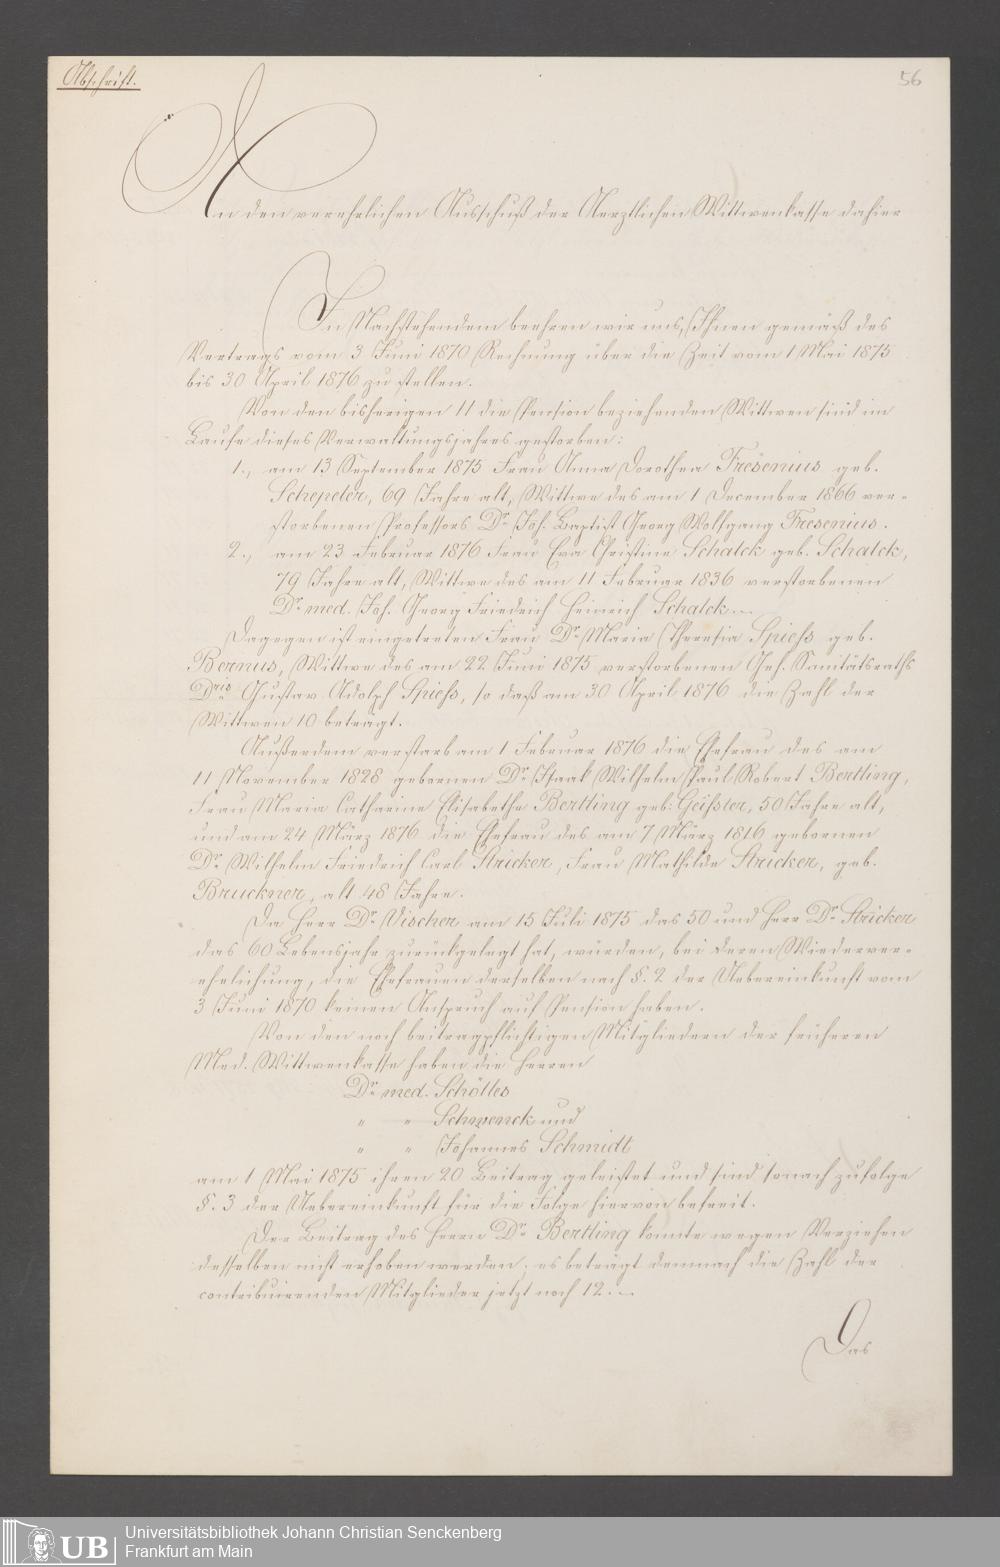 Abschrift.
56
An den verehrlichen Ausschuß der Aerztlichen Wittwenkasse dahier
In Nachstehendem beehren wir uns, Ihnen gemäß des
Vertrags vom 3 Juni 1870 Rechnung über die Zeit vom 1 Mai 1875
bis 30 April 1876 zu stellen.
Von den bisherigen 11 die Pension beziehenden Wittwen sind im
Laufe dieses Verwaltungsjahres gestorben:
1., am 13 September 1875 Frau Anna Dorothea Fresenius geb.
Schepeler, 69 Jahre alt, Wittwe des am 1 December 1866 ver-
storbenen Professors Dr. Joh. Baptist Georg Wolfgang Fresenius.
2., am 23 Februar 1876 Frau Eva Christine Schalck geb. Schalck,
79 Jahre alt, Wittwe des am 11 Februar 1836 verstorbenen
Dr. med. Joh. Georg Friedrich Heinrich Schalck.
Dagegen ist eingetreten Frau Dr. Maria Theresia Spiess geb.
Bernus, Wittwe des am 22 Juni 1875 verstorbenen Geh. Sanitätsraths
Dris Gustav Adolph Spiess, so daß am 30 April 1876 die Zahl der
Wittwen 10 beträgt.
Außerdem verstarb am 1 Februar 1876 die Ehefrau des am
11 November 1828 gebornen Dr. Isaak Wilhelm Paul Robert Bertling,
Frau Maria Catharine Elisabethe Bertling geb. Geissler, 50 Jahre alt,
und am 24 März 1876 die Ehefrau des am 7 März 1816 gebornen
Dr. Wilhelm Friedrich Carl Stricker, Frau Mathilde Stricker, geb.
Bruckner, alt 48 Jahre.
Da Herr Dr. Vischer am 15 Juli 1875 das 50 und Herr Dr. Stricker
das 60 Lebensjahr zurückgelegt hat, würden, bei deren Wiederver-
ehelichung, die Ehefrauen derselben nach §. 2 der Uebereinkunft vom
3 Juni 1870 keinen Anspruch auf Pension haben.
Von den noch beitragpflichtigen Mitgliedern der früheren
Med. Wittwenkasse haben die Herren
Dr. med. Schölles
" " Schwenck und
" " Johannes Schmidt
am 1 Mai 1875 ihren 20 Beitrag geleistet und sind sonach zufolge
§. 3 der Uebereinkunft für die Folge hiervon befreit.
Der Beitrag des Herrn Dr. Bertling konnte wegen Verziehen
desselben nicht erhoben werden; es beträgt demnach die Zahl der
contribuirenden Mitglieder jetzt noch 12.
Das
UB
Universitätsbibliothek Johann Christian Senckenberg
Frankfurt am Main